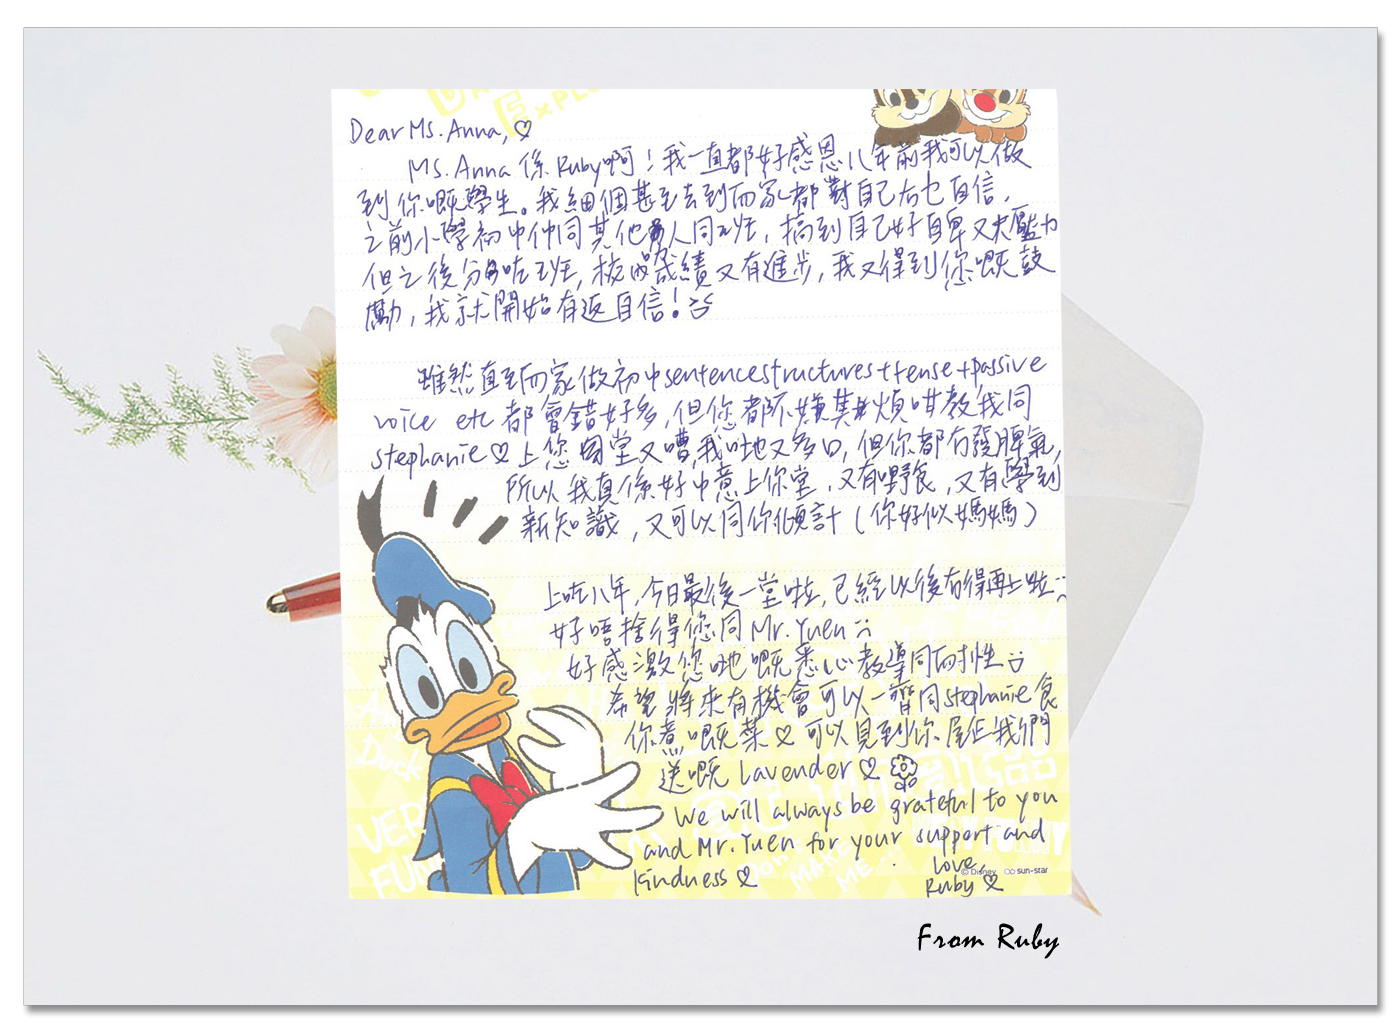 Dear Ms. Anna, ♡
Ms. Anna 係 Ruby啊！我一直都好感恩八年前我可以做
到你嘅學生。我細個甚至去到而家都對自己冇乜自信，
之前小學初中仲同其他人同班，搞到自己好自卑又大壓力
但之後分咗班，校內成績又有進步，我又得到您嘅鼓
勵，我就開始有返自信！
雖然直到而家做初中sentence structures+tense+passive
voice etc 都會錯好多，但您都不嫌其煩咁教我同
stephanie♡上您堂又嘈，我哋又多口，但你都冇發脾氣，
所以我真係好中意上你堂，又有嘢食，又有學到
新知識，又可以同你傾計（你好似媽媽）
上咗八年，今日最後一堂啦，已經以後冇得再上啦
好唔捨得您同Mr. Yuen
好感激您哋嘅悉心教導同耐性
希望將來有機會可以一齊同stephanie食
你煮嘅菜♡可以見到你屋企我們
送嘅 Lavender♡
We will always be grateful to you
and Mr. Yuen for your support and
kindness♡
Love,
Ruby♡
© Disney sun-star
From Ruby